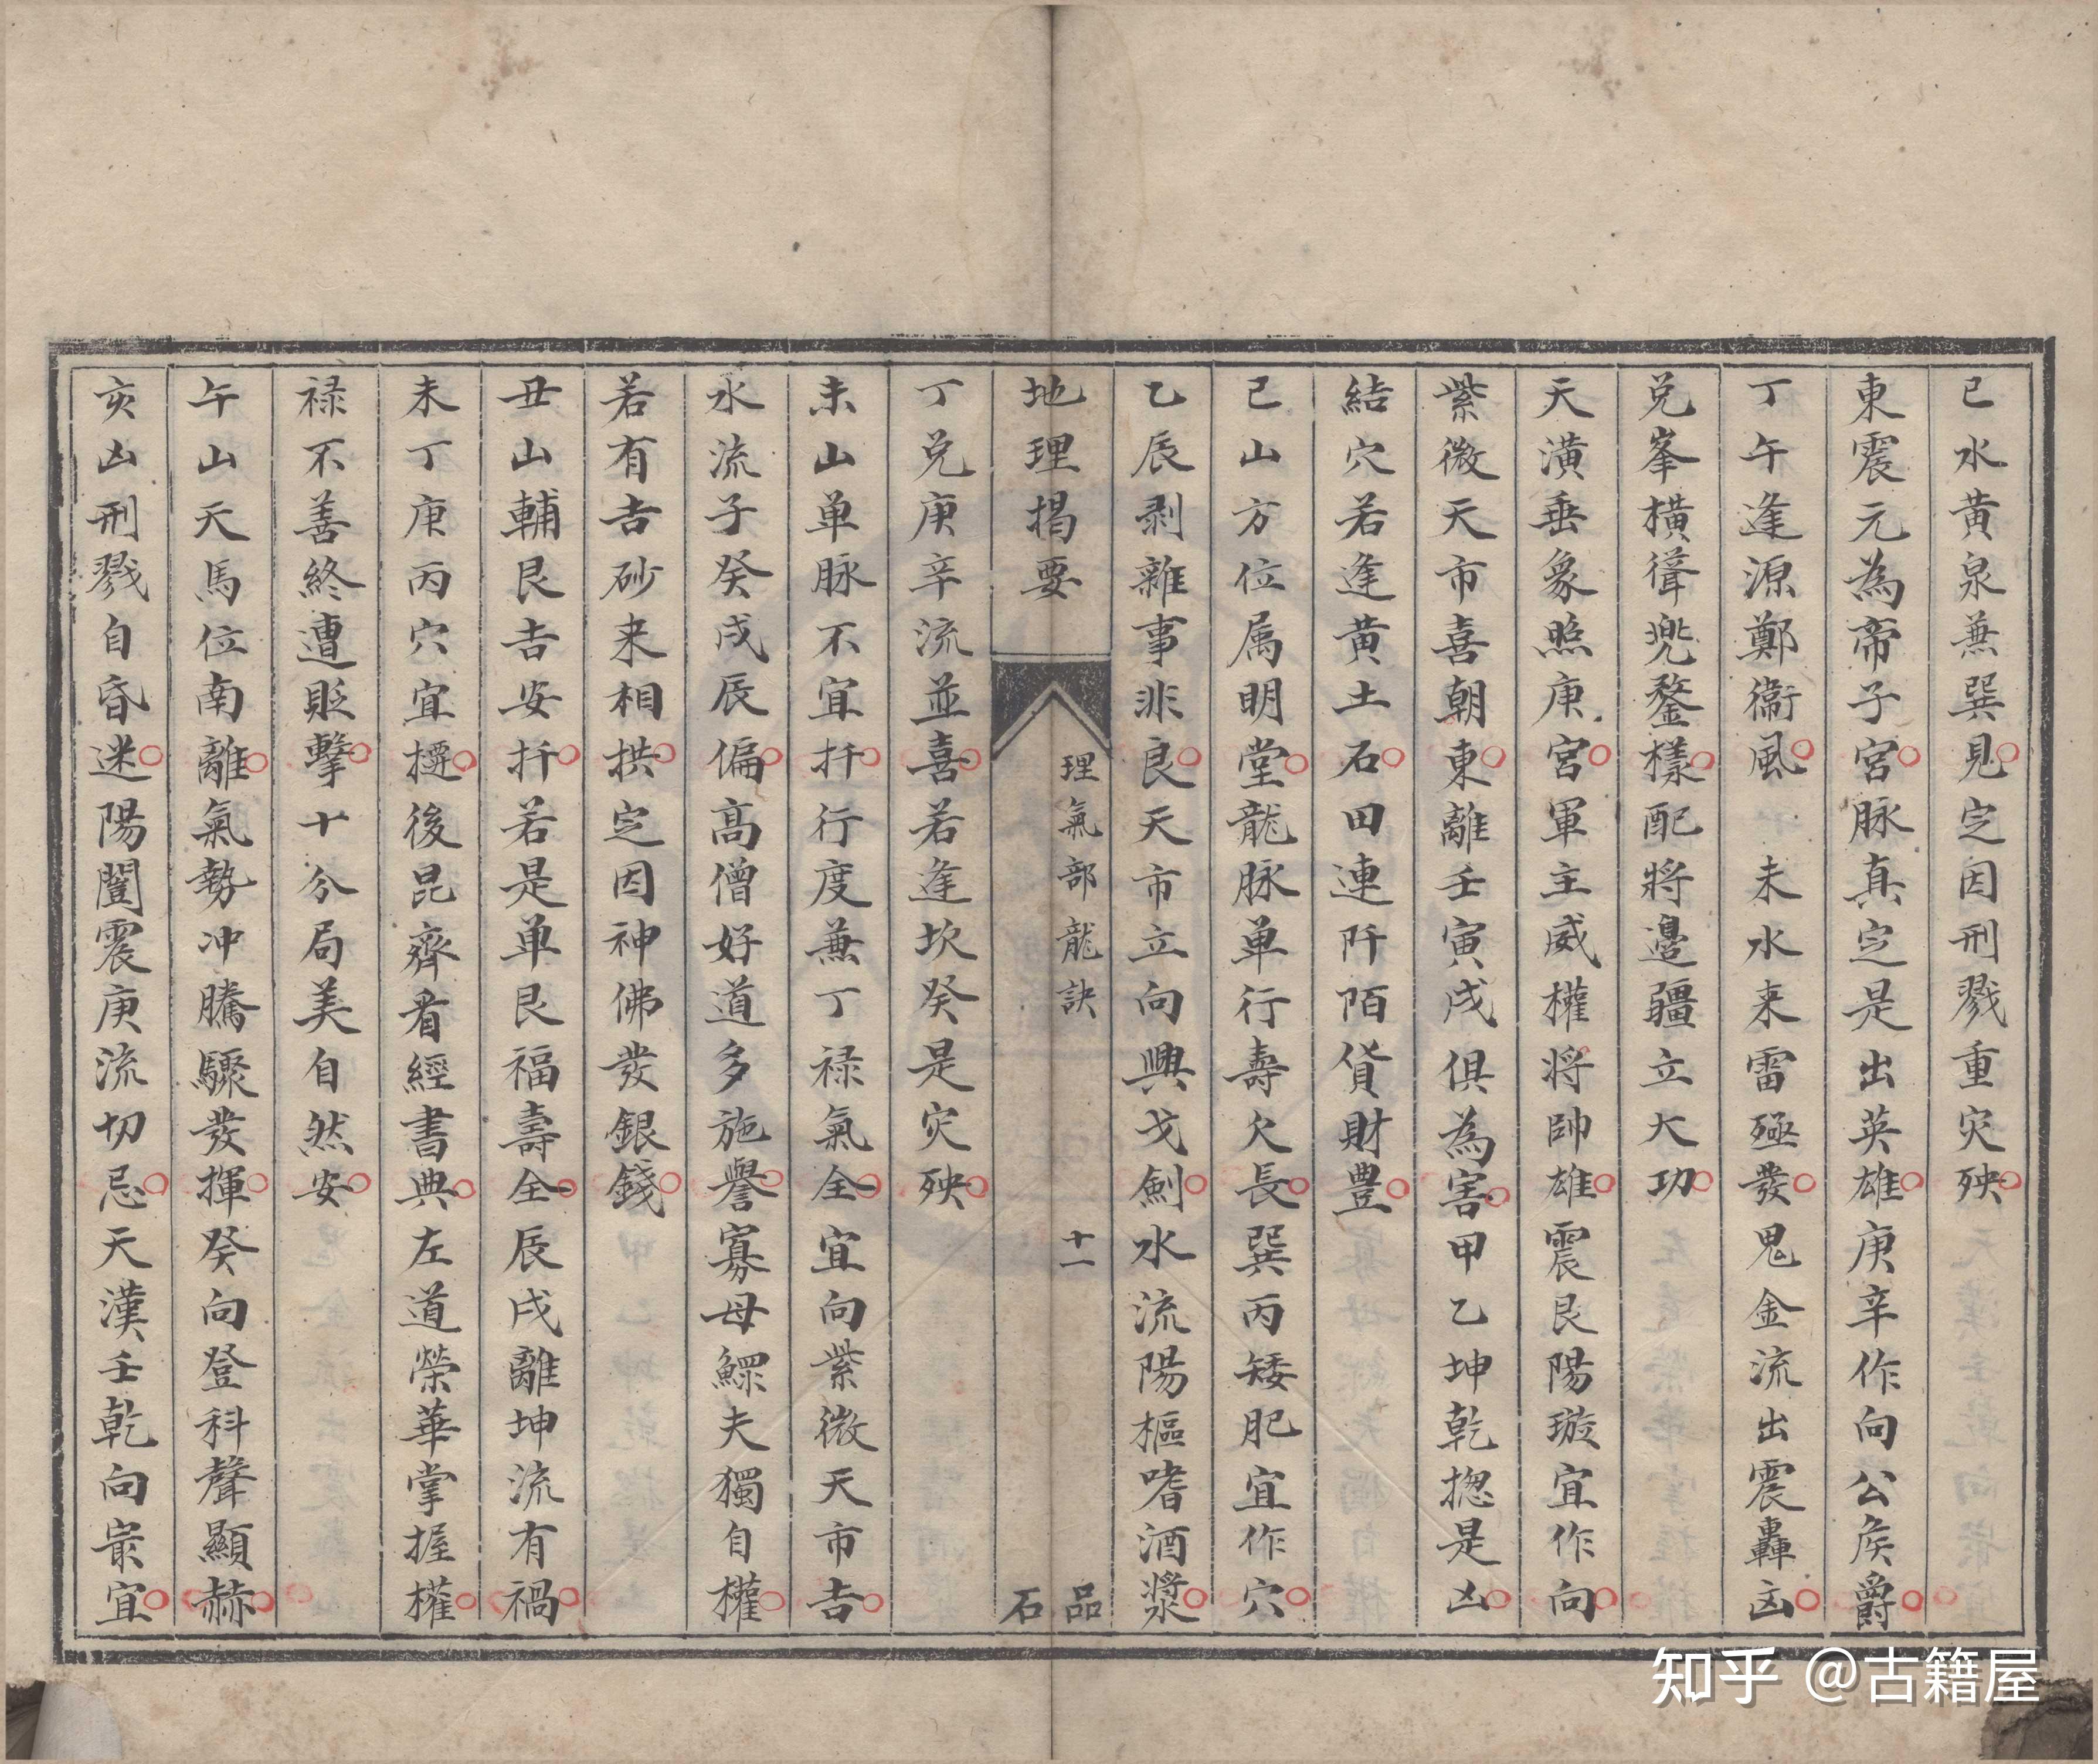 巳水黄泉無巽見定因刑戮重灾殃
東震元為帝子宮脉真定是出英雄庚辛作向公侯爵
丁午逢源鄭衞風未水来雷殛發鬼金流出震轟凶
兑峯橫聳兠鍪樣配將邊疆立大功
天潢垂象照庚宮軍主威權将帥雄震艮陽璇宜作向
紫微天市喜朝東離壬寅戌俱為害甲乙坤乾揔是凶
結穴若逢黄土石田連阡陌貨財豐
巳山方位属明堂龍脉单行壽欠長巽丙矮肥宜作穴
乙辰剥雜事非良天市立向興戈劍水流陽樞嗜酒漿
地理揭要
理氣部龍訣
十一
品石
丁兑庚辛流並喜若逢坎癸是灾殃
未山单脉不宜扦行度兼丁禄氣全宜向紫微天市吉
水流子癸戌辰偏高僧好道多施譽寡母鰥夫獨自權
若有吉砂来相拱定因神佛發銀錢
丑山輔艮吉安扦若是单艮福壽全辰戌離坤流有禍
未丁庚丙穴宜𢴲後昆齊看經書典左道榮華掌握權
禄不善終遭貶擊十分局美自然安
午山天馬位南離氣勢冲騰驟發揮癸向登科聲顯赫
亥凶刑戮自昏迷陽闓震庚流切忌天漢壬乾向㝡宜
知乎 @古籍屋